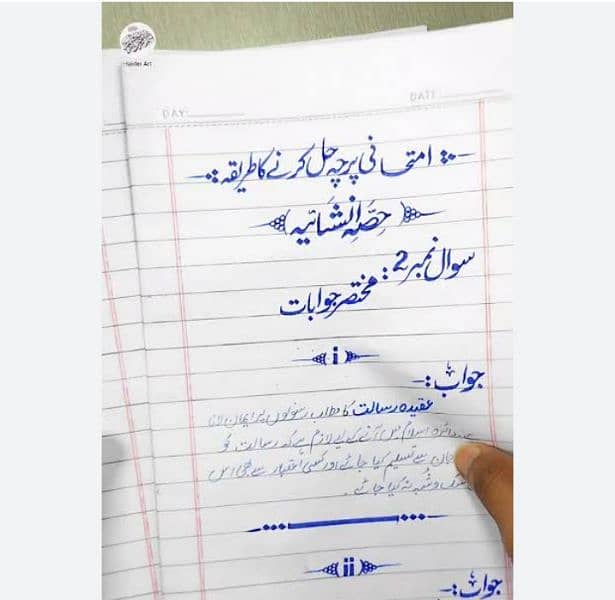 Haider Art
DAY:
DATE:
امتحانی پرچہ حل کرنے کا طریقہ:
حِصَّہ اِنْشَائیہ
سوال نمبر 2:
مختصر جوابات
i
جواب:
عقیدہ رسالت کا مطلب رسولوں پر ایمان لانا
دائرہ اسلام میں آنے کے لیے لازم ہے کہ رسالت کو
جان سے تسلیم کیا جائے اور کسی اعتبار سے بھی اس
شک و شُبہ نہ کیا جائے۔
ii
جواب: